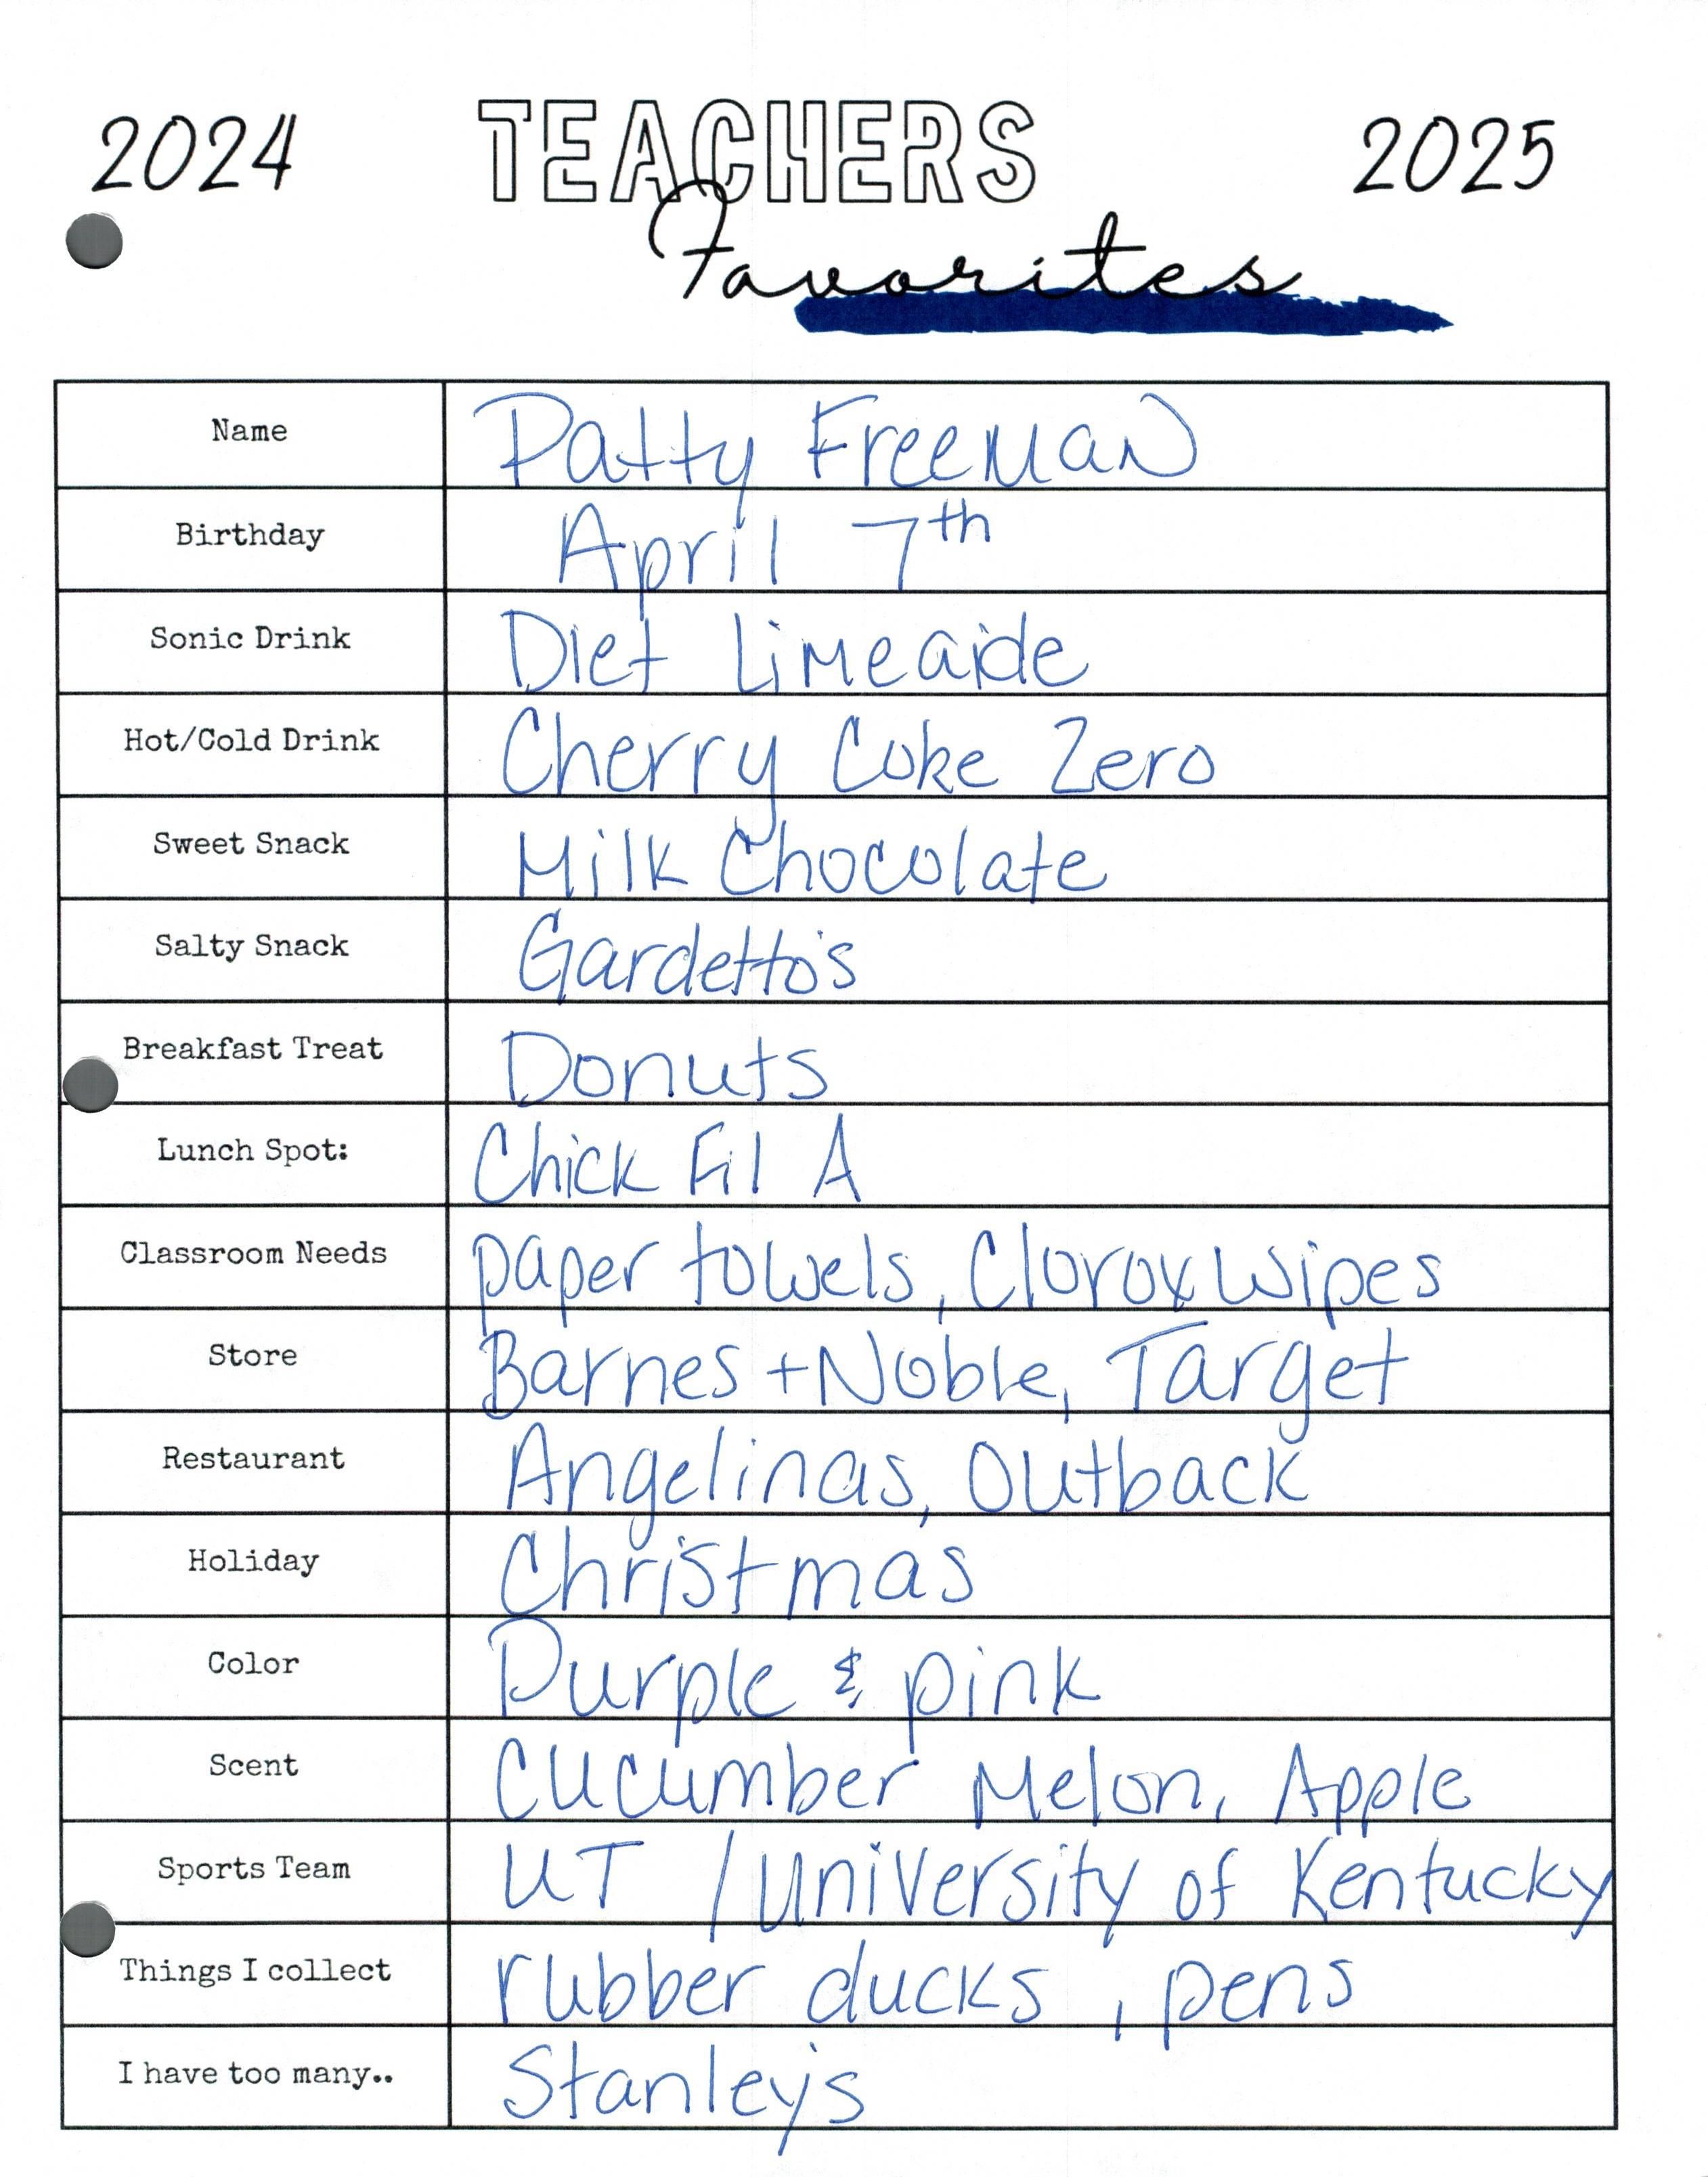 2024 TEACHERS 2025
Favorites
Name Patty Freeman
Birthday April 7th
Sonic Drink Diet Limeaide
Hot/Cold Drink Cherry Coke Zero
Sweet Snack Milk Chocolate
Salty Snack Gardetto's
Breakfast Treat Donuts
Lunch Spot: Chick Fil A
Classroom Needs paper towels, Clorox Wipes
Store Barnes + Noble, Target
Restaurant Angelinas, Outback
Holiday Christmas
Color Purple & pink
Scent Cucumber Melon, Apple
Sports Team UT / University of Kentucky
Things I collect rubber ducks, pens
I have too many.. Stanley's